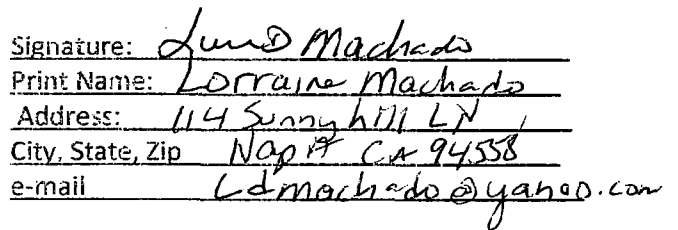 Signature: Machado
Print Name: Lorraine Machado
Address: 114 Sunnyhill LN
City, State, Zip Napa CA 94558
e-mail Ldmachado@yahoo.com